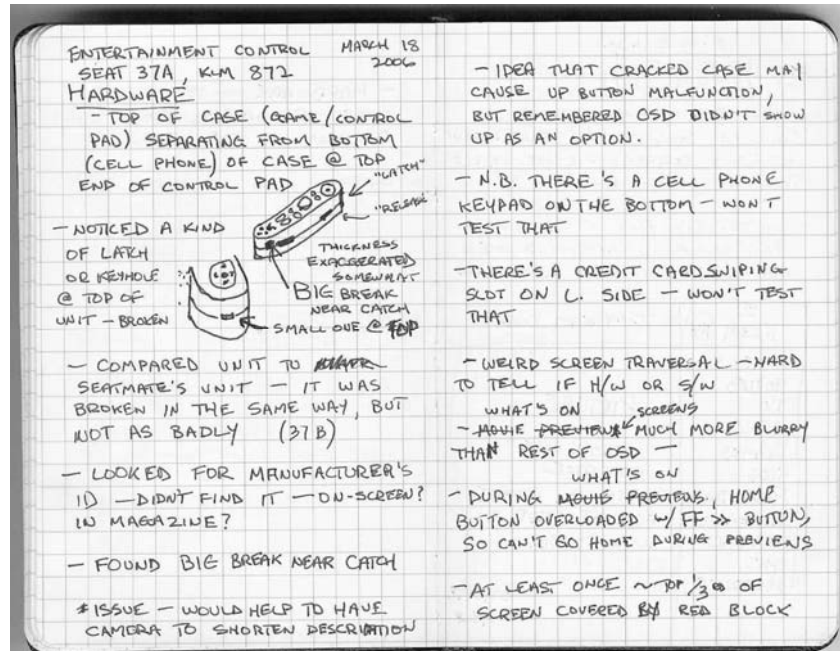 ENTERTAINMENT CONTROL MARCH 18
SEAT 37A, KLM 872 2006
HARDWARE
- TOP OF CASE (GAME/CONTROL
PAD) SEPARATING FROM BOTTOM
(CELL PHONE) OF CASE @ TOP
END OF CONTROL PAD
"LATCH"
"RELEASE"
- NOTICED A KIND
OF LATCH
OR KEYHOLE
@ TOP OF
UNIT - BROKEN
THICKNESS
EXAGGERATED
SOMEWHAT
BIG BREAK
NEAR CATCH
SMALL ONE @ TOP
- COMPARED UNIT TO
SEATMATE'S UNIT - IT WAS
BROKEN IN THE SAME WAY, BUT
NOT AS BADLY (37B)
- LOOKED FOR MANUFACTURER'S
ID - DIDN'T FIND IT - ON-SCREEN?
IN MAGAZINE?
- FOUND BIG BREAK NEAR CATCH
* ISSUE - WOULD HELP TO HAVE
CAMERA TO SHORTEN DESCRIPTION
- IDEA THAT CRACKED CASE MAY
CAUSE UP BUTTON MALFUNCTION,
BUT REMEMBERED OSD DIDN'T SHOW
UP AS AN OPTION.
- N.B. THERE'S A CELL PHONE
KEYPAD ON THE BOTTOM - WON'T
TEST THAT
- THERE'S A CREDIT CARD SWIPING
SLOT ON L. SIDE - WON'T TEST
THAT
- WEIRD SCREEN TRAVERSAL - HARD
TO TELL IF H/W OR S/W
WHAT'S ON SCREENS
- MOVIE PREVIEWS MUCH MORE BLURRY
THAN REST OF OSD -
WHAT'S ON
- DURING MOVIE PREVIEWS, HOME
BUTTON OVERLOADED W/ FF >> BUTTON,
SO CAN'T GO HOME DURING PREVIEWS
- AT LEAST ONCE ~ TOP 1/3 OF
SCREEN COVERED BY RED BLOCK